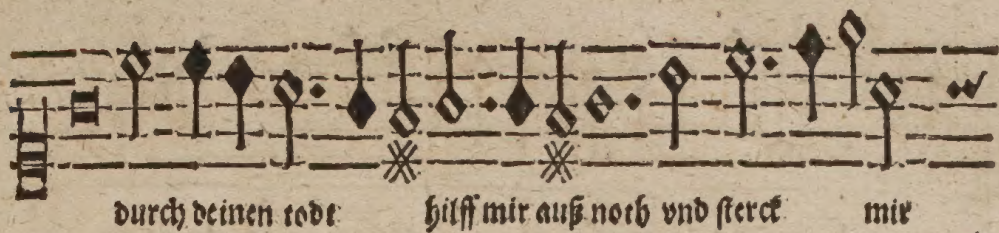 durch deinen todt hilff mir auß noth vnd sterck mir